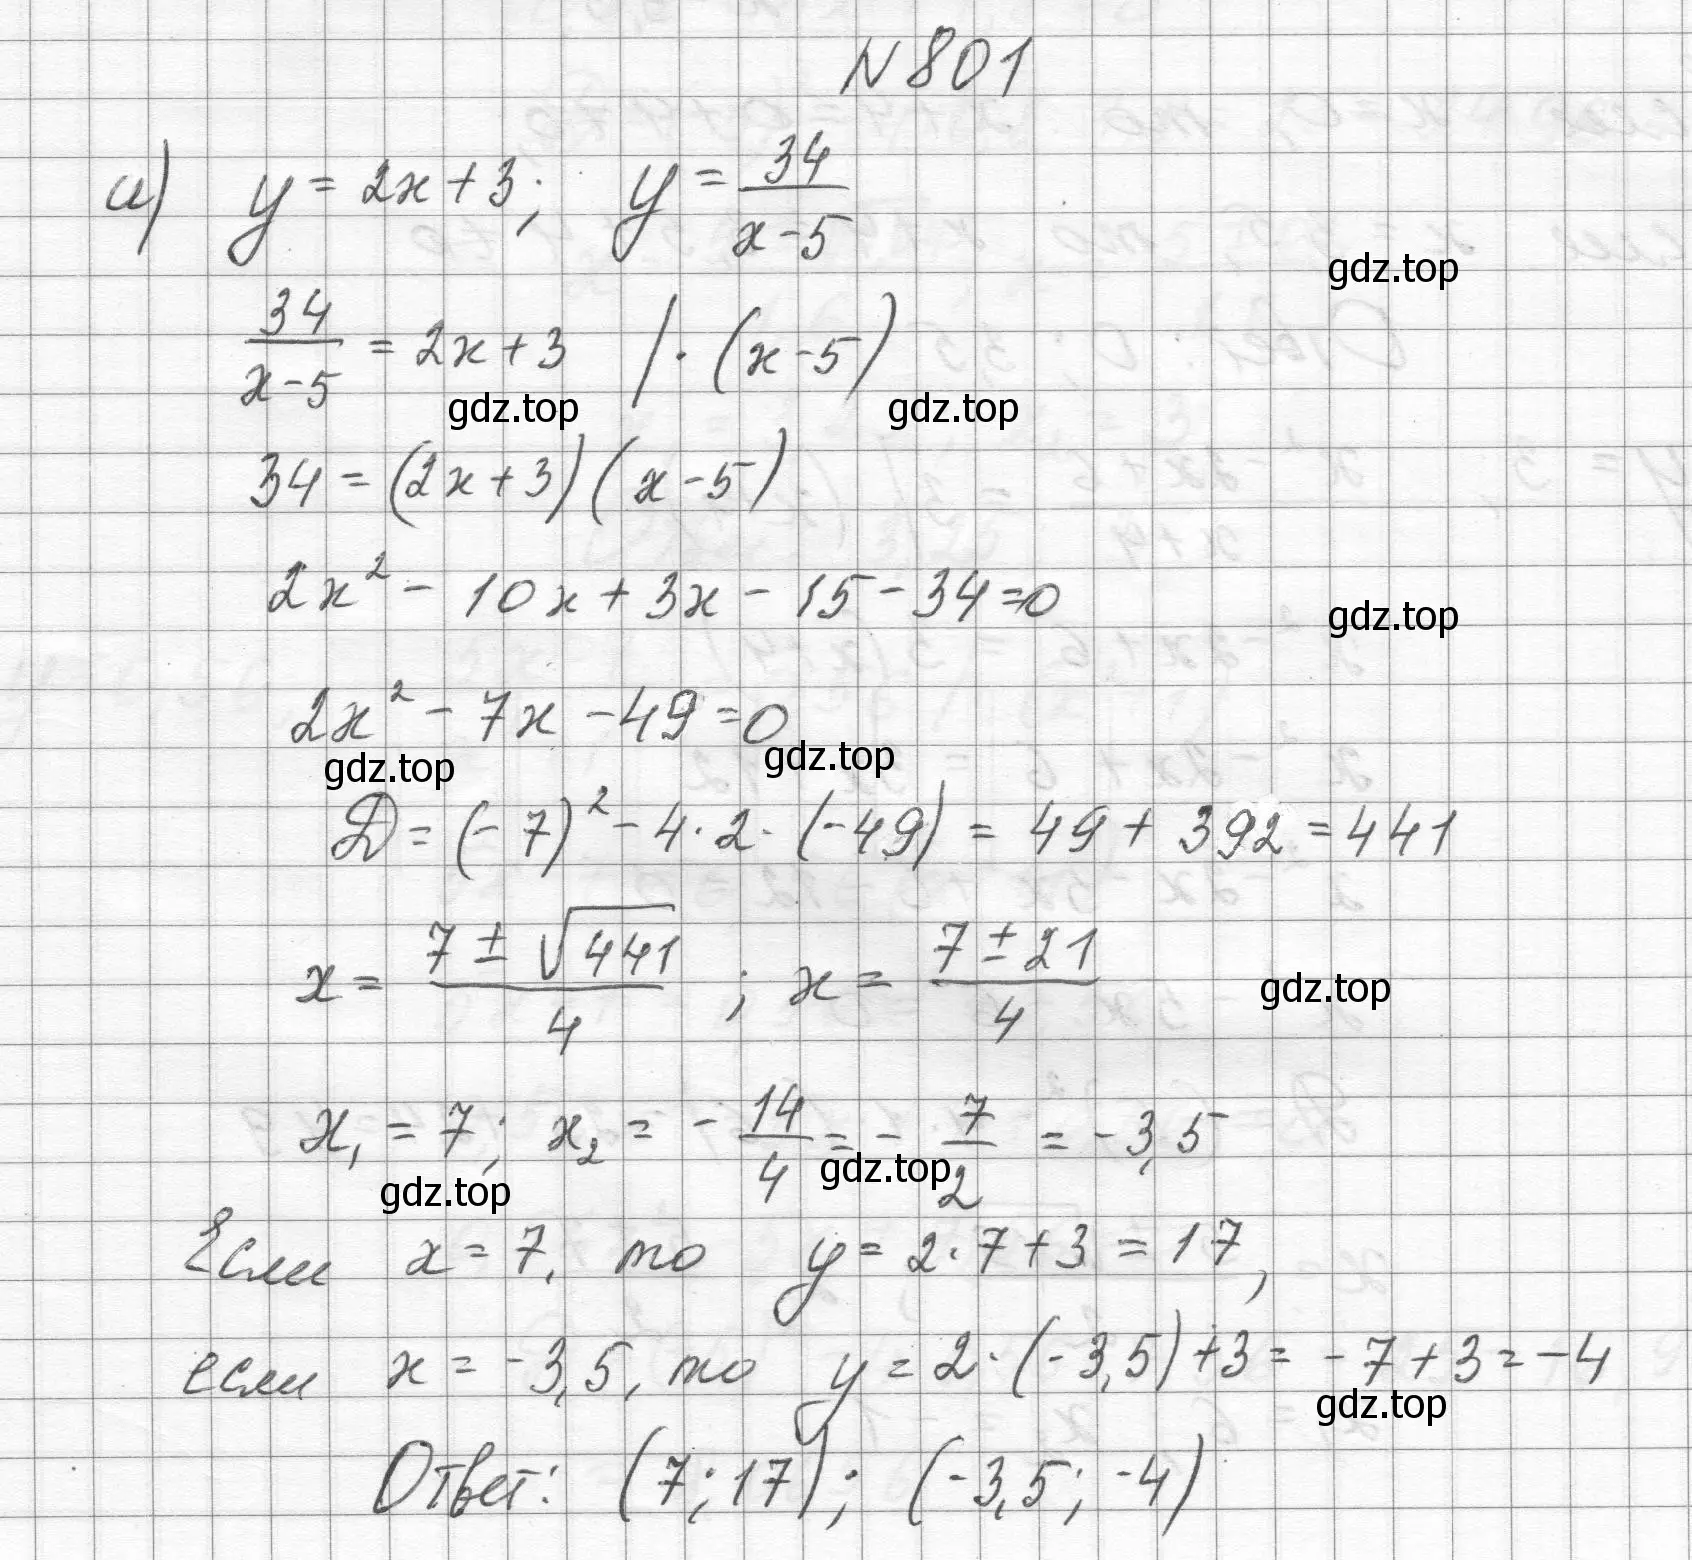 N 801
а) y = 2x + 3; y = 34/(x - 5)
gdz.top
34/(x - 5) = 2x + 3 | · (x - 5)
gdz.top gdz.top
34 = (2x + 3)(x - 5)
2x² - 10x + 3x - 15 - 34 = 0
gdz.top
2x² - 7x - 49 = 0
gdz.top gdz.top
Д = (-7)² - 4 · 2 · (-49) = 49 + 392 = 441
x = (7 ± √441)/4 ; x = (7 ± 21)/4
gdz.top
x₁ = 7; x₂ = - 14/4 = - 7/2 = -3,5
gdz.top gdz.top
Если x = 7, то y = 2 · 7 + 3 = 17,
если x = -3,5, то y = 2 · (-3,5) + 3 = -7 + 3 = -4
gdz.top
Ответ: (7; 17); (-3,5; -4)